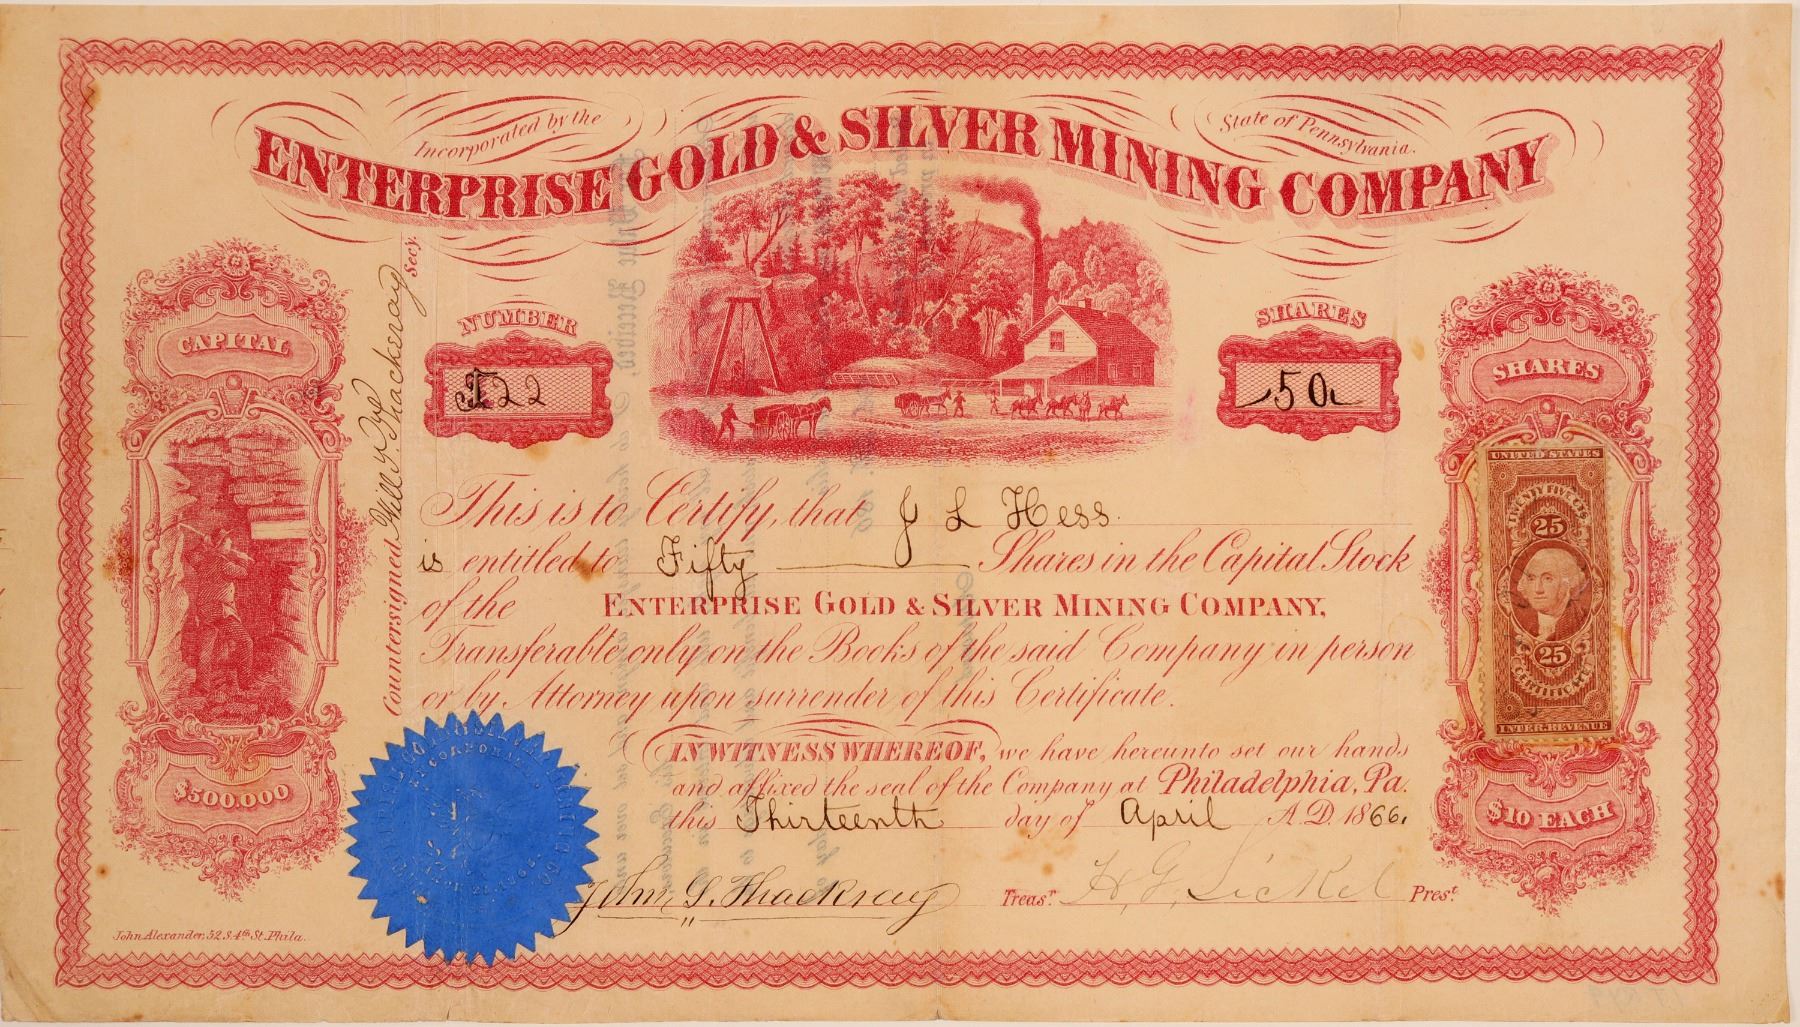 Incorporated by the
State of Pennsylvania.
ENTERPRISE GOLD & SILVER MINING COMPANY
NUMBER
122
SHARES
50
CAPITAL
$500.000
SHARES
$10 EACH
UNITED STATES
TWENTY FIVE CTS.
25
25
CERTIFICATE
INTER. REVENUE
Countersigned Thackeray Secy.
This is to Certify, that J L Hess.
is entitled to Fifty Shares in the Capital Stock
of the ENTERPRISE GOLD & SILVER MINING COMPANY,
Transferable only on the Books of the said Company in person
or by Attorney upon surrender of this Certificate.
IN WITNESS WHEREOF, we have hereunto set our hands
and affixed the seal of the Company at Philadelphia, Pa.
this Thirteenth day of April A.D. 1866.
John S. Thackray Treasr. H. G. Sickel Prest.
John Alexander, 52 S. 4th St. Phila.